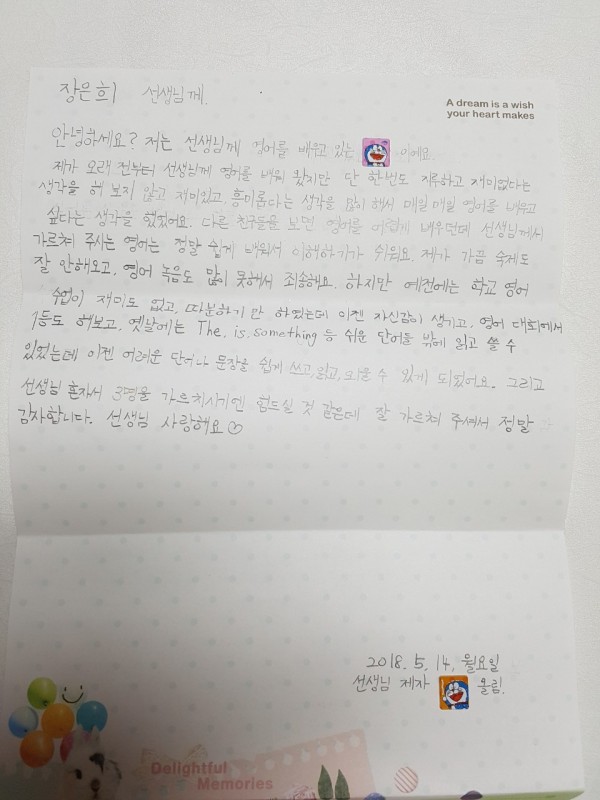 장은희 선생님께.
A dream is a wish
your heart makes
안녕하세요? 저는 선생님께 영어를 배우고 있는 이에요.
제가 오래 전부터 선생님께 영어를 배워 왔지만 단 한번도 지루하고 재미없다는
생각을 해 보지 않고 재미있고, 흥미롭다는 생각을 많이 해서 매일 매일 영어를 배우고
싶다는 생각을 했었어요. 다른 친구들을 보면 영어를 어렵게 배우던데 선생님께서
가르쳐 주시는 영어는 정말 쉽게 배워서 이해하기가 쉬워요. 제가 가끔 숙제도
잘 안해오고, 영어 녹음도 많이 못해서 죄송해요. 하지만 예전에는 학교 영어
수업이 재미도 없고, 따분하기만 하였는데 이젠 자신감이 생기고, 영어 대회에서
1등도 해보고, 옛날에는 The, is, something 등 쉬운 단어들 밖에 읽고 쓸 수
있었는데 이젠 어려운 단어나 문장을 쉽게 쓰고, 읽고, 외울 수 있게 되었어요. 그리고
선생님 혼자서 3명을 가르치시기엔 힘드실 것 같은데 잘 가르쳐 주셔서 정말
감사합니다. 선생님 사랑해요♡
2018. 5. 14. 월요일
선생님 제자 올림.
Delightful
Memories